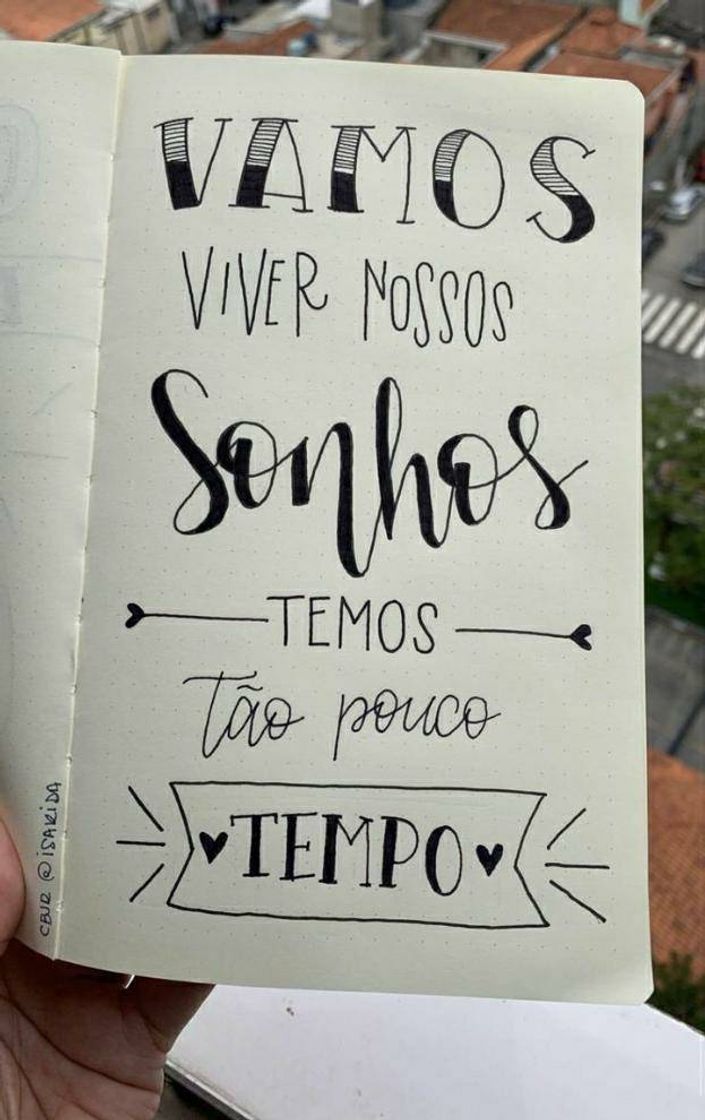 VAMOS
VIVER NOSSOS
Sonhos
TEMOS
Tão pouco
TEMPO
@ISARIDA